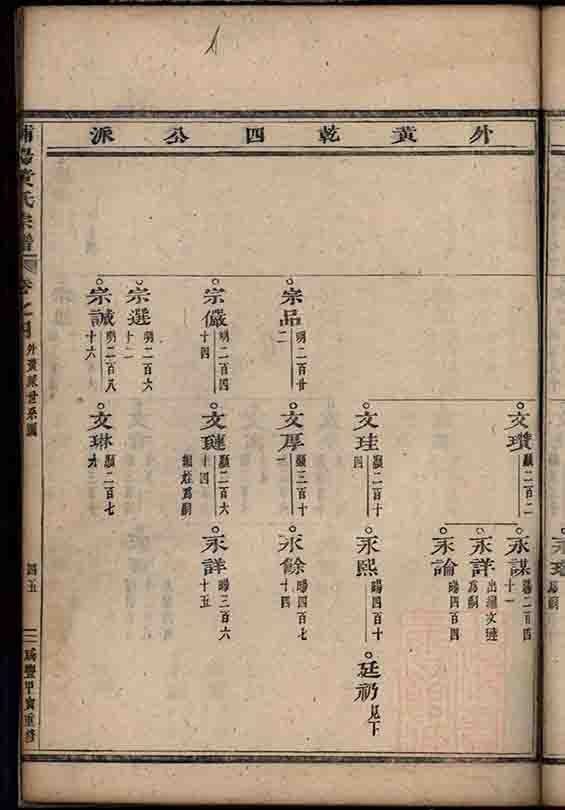 外黃乾四公派
文瓚 顯二百二
永謀 暘二百四十一
永詳 出繼文璉為嗣
永論 暘四百四
文珪 顯二百十四
永熙 暘四百十
廷礽 見下
宗品 明二百廿二
文厚 顯三百十一
永餘 暘四百七十四
宗儼 明二百四十四
文璉 顯二百六十四
繼姪為嗣
永詳 暘三百六十五
宗選 明二百六十一
宗誠 明二百八十六
文琳 顯二百七十六
黃氏宗譜 卷之四 外黃派世系圖 四五 咸豐甲寅重修